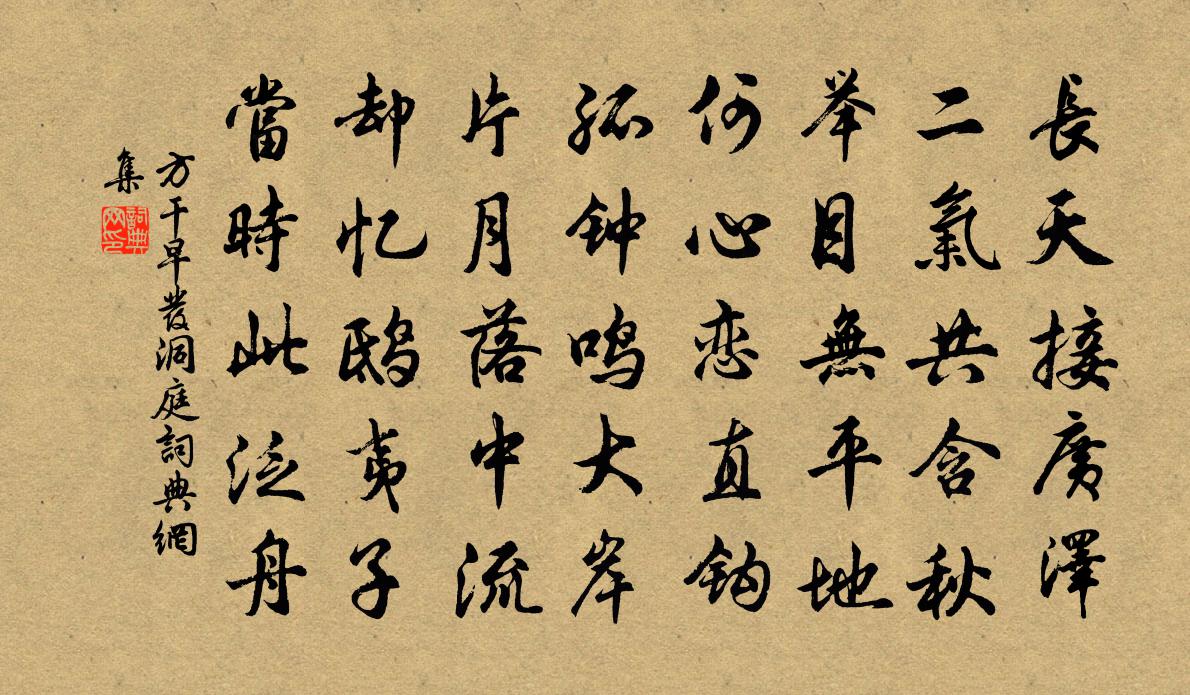 長天接廣澤
二氣共含秋
举目無平地
何心恋直钩
孤钟鸣大岸
片月落中流
却忆鸱夷子
當時此泛舟
方干早發洞庭詞典網
集
詞典
网印